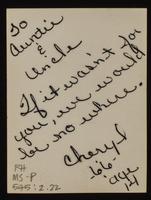 To
Auntie
&
Uncle
If it wasn't for
you, we would
be no where.
Cheryl
'66
age
14
PH
MS-P
545:2.22